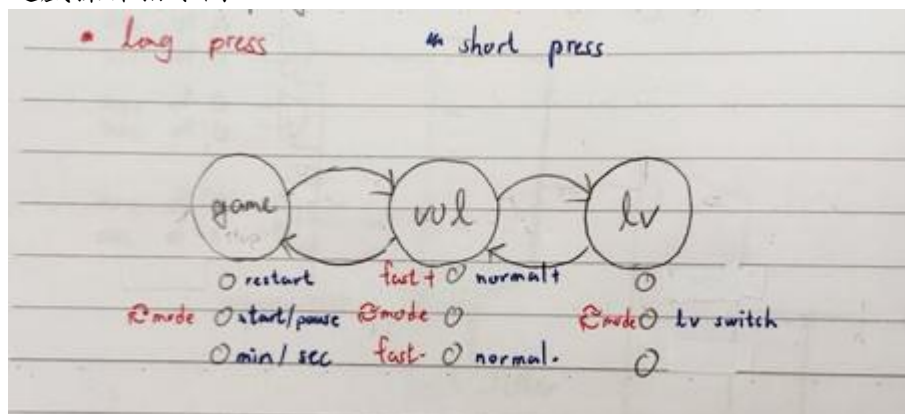 long press short press
game vol lv
stop
restart fast + normal+
mode start/pause mode mode lv switch
min/sec fast- normal-